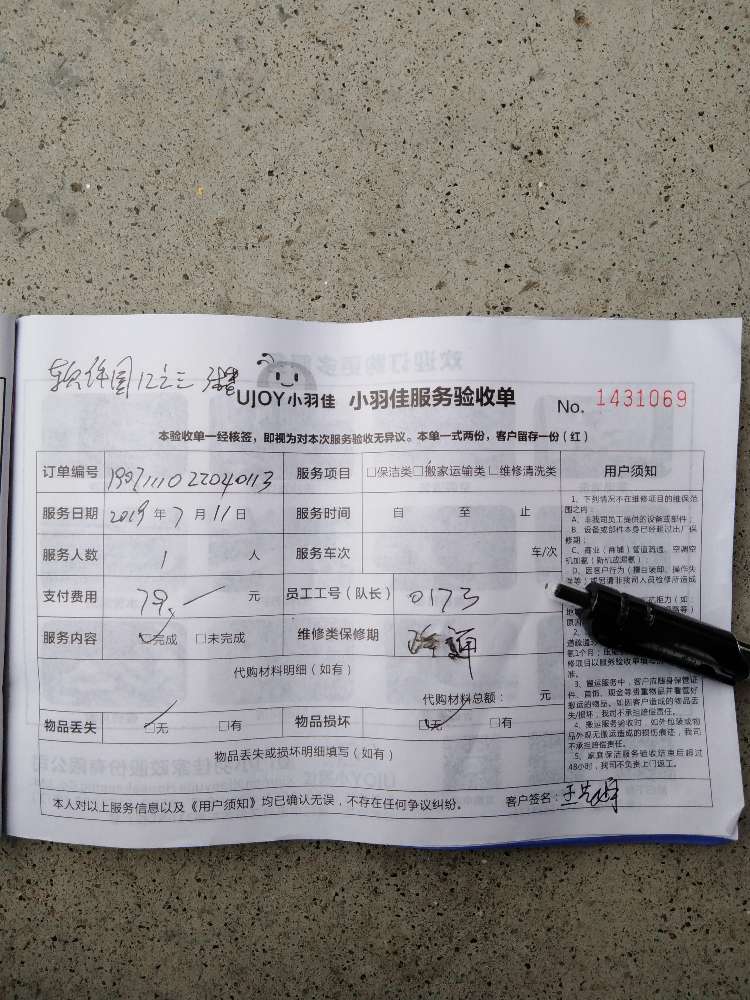 软件园12之三
UJOY小羽佳 小羽佳服务验收单 No. 1431069
本验收单一经核签，即视为对本次服务验收无异议。本单一式两份，客户留存一份（红）
订单编号 服务项目 □保洁类□搬家运输类□维修清洗类 用户须知
服务日期 2019 年 7 月 11 日 服务时间 自 至 止
服务人数 1 人 服务车次 车/次
支付费用 79 元 员工工号（队长） 0173
服务内容 □完成 □未完成 维修类保修期
代购材料明细（如有）
代购材料总额： 元
物品丢失 □无 □有 物品损坏 □无 □有
物品丢失或损坏明细填写（如有）
本人对以上服务信息以及《用户须知》均已确认无误，不存在任何争议纠纷。 客户签名：
1、下列情况不在维修项目的维保范
围之内：
A、非我司员工提供的设备或部件；
B、设备或部件本身已经超过出厂保
修期；
C、商业（商铺）管道疏通、空调空
机加氨（新机或漏氨）；
D、因客户行为（擅自装卸、操作失
误等）或另请非我司人员检修所造成
修项目以服务验收单填写
准。
3、搬运服务中，客户应随身保管证
件、首饰、现金等贵重物品并看管好
搬运的物品。如因客户造成的物品丢
失/损坏，我司不承担赔偿责任。
4、搬运服务验收时，如外包装或物
品外观无搬运造成的损伤痕迹，我司
不承担赔偿责任。
5、家庭保洁服务验收结束后超过
48小时，我司不负责上门返工。